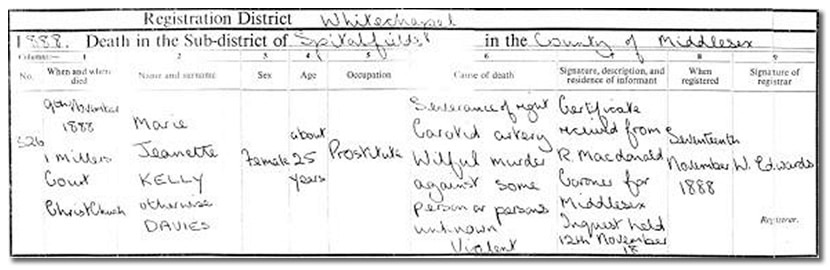 Registration District Whitechapel
1888. Death in the Sub-district of Spitalfields in the County of Middlesex
Columns:- 1 2 3 4 5 6 7 8 9
No. When and where died Name and surname Sex Age Occupation Cause of death Signature, description, and residence of informant When registered Signature of registrar
326
9th November
1888
1 Millers
Court
ChristChurch
Marie
Jeanette
KELLY
otherwise
DAVIES
Female
about
25
years
Prostitute
Severance of right
Carotid artery
Wilful murder
against some
person or persons
unknown
Violent
Certificate
received from
R. Macdonald
Coroner for
Middlesex
Inquest held
12th November
18
Seventeenth
November
1888
W. Edwards
Registrar.